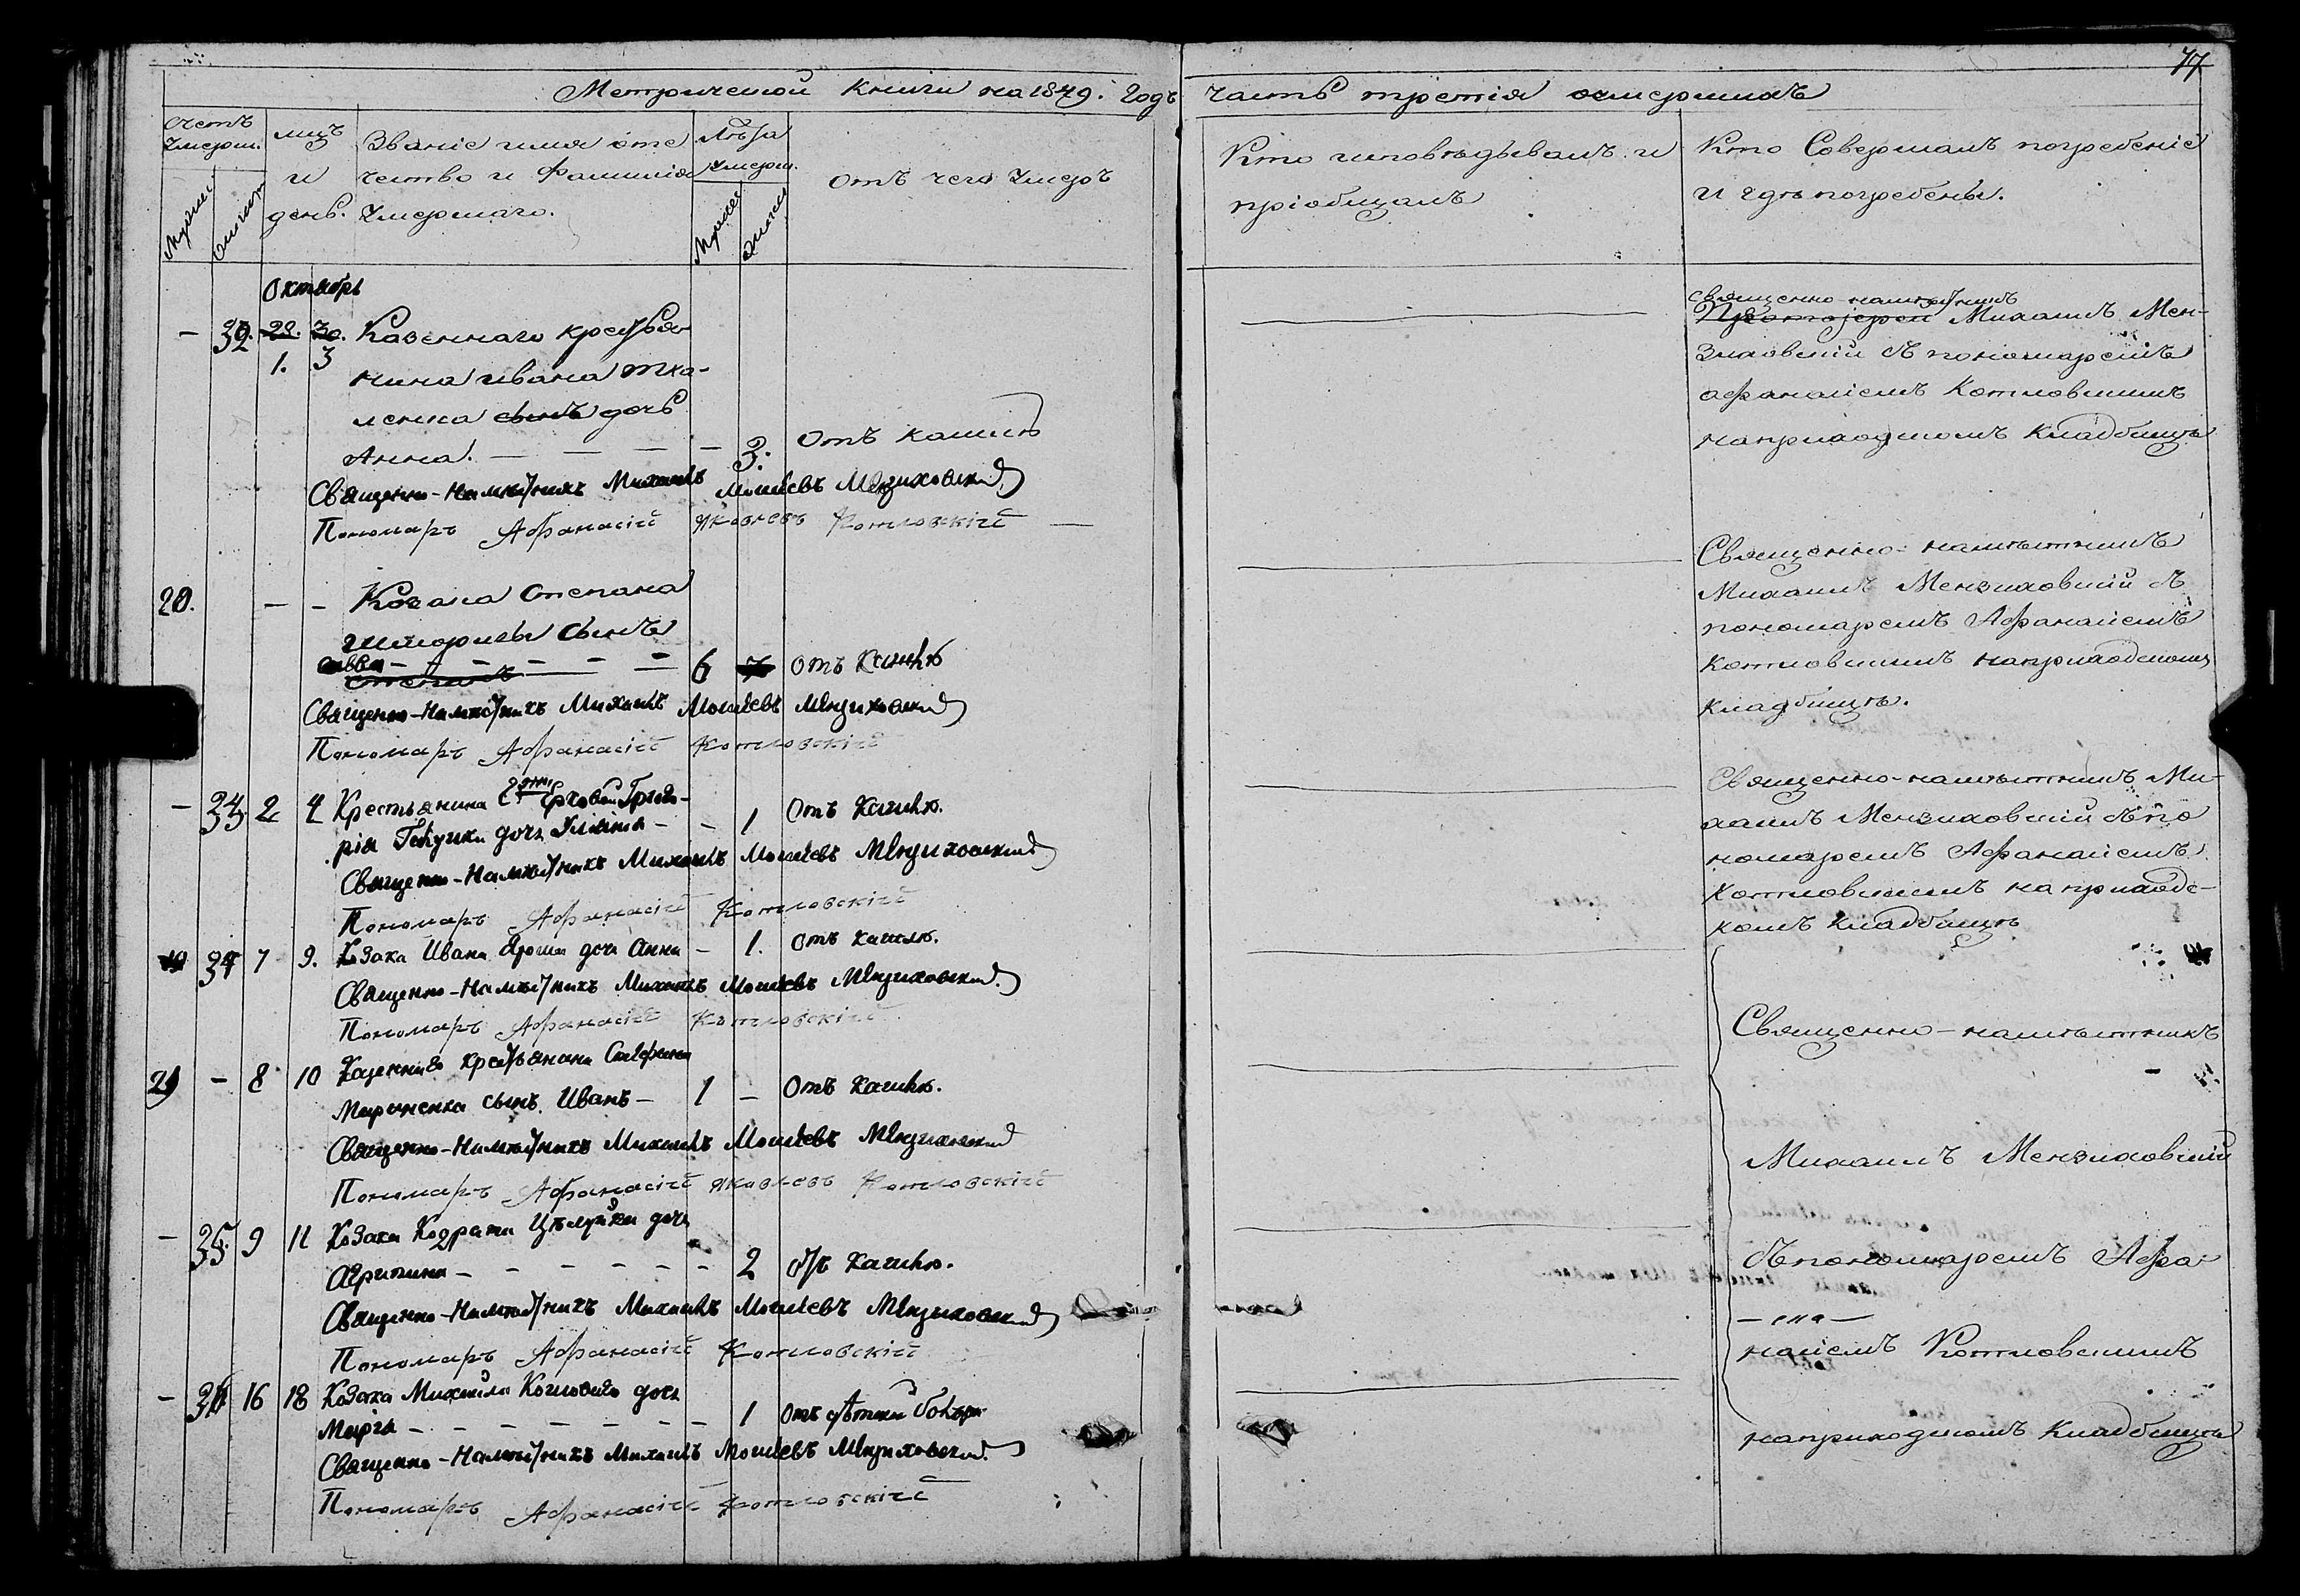 77
Метрической Книги на 1849. Годъ часть третія о умершихъ
Счетъ умерш.
Мужеск
женск
мцъ и день.
Званіе имя отечество и Фамилія Умершаго.
Лѣта умерш.
Мужес
женск
Отъ чего Умеръ
Кто исповѣдывалъ и пріобщалъ
Кто Совершалъ погребеніе и гдѣ погребены.
Октябрь
— 32. 29. 30. Казеннаго крестья-
1. 3
нина ивана Тка-
ленка сынъ дочь
Анна. — — — — 3. Отъ кашлю
Священно-Намѣстникъ Михаилъ Моисѣевъ Мензиховскій
Пономарь Афанасій Яковлевъ Котловскій —
священно-намѣстникъ
Протоіерей Михаилъ Мен-
зиховскій съ пономаремъ
афанасіемъ Котловскимъ
на приходскомъ Кладбищѣ
20. — — Козака Степана
сынъ
савва — — — — 6 7 отъ Кашлю
степанъ
Священно-Намѣстникъ Михаилъ Моисѣевъ Мензиховскій
Пономарь Афанасій Котловскій
Священно-намѣстникъ
Михаилъ Мензиховскій съ
пономаремъ Афанасіемъ
Котловскимъ на приходскомъ
кладбищѣ.
— 33 2 4 Крестьянина Григо-
рія дочь Ульяна — — 1 Отъ Кашлю.
Священно-Намѣстникъ Михаилъ Моисѣевъ Мензиховскій
Пономарь Афанасій Котловскій
Священно-намѣстникъ Ми-
хаилъ Мензиховскій съ по
номаремъ Афанасіемъ
Котловскимъ на приходс-
комъ кладбищѣ
34 7 9. Козака Ивана Яроша дочь Анна — 1. отъ кашлю.
Священно-Намѣстникъ Михаилъ Моисѣевъ Мензиховскій.
Пономарь Афанасій Котловскій
21 — 8 10 Казеннаго крестьянина Стефана
Мироненка сынъ Иванъ — 1 — Отъ кашлю.
Священно-Намѣстникъ Михаилъ Моисѣевъ Мензиховскій
Пономарь Афанасій Яковлевъ Котловскій
— 35. 9 11 Козака Кодрата Цѣлуйка дочь
Агрипина — — — — — — 2 отъ кашлю.
Священно-Намѣстникъ Михаилъ Моисѣевъ Мензиховскій
Пономарь Афанасій Котловскій
— 36 16 18 Козака Михаила дочь
Марія — — — — — — 1 Отъ
Священно-Намѣстникъ Михаилъ Моисѣевъ Мензиховскій.
Пономарь Афанасій Котловскій
Священно-намѣстникъ
Михаилъ Мензиховскій
съ пономаремъ Афа-
насіемъ Котловскимъ
на приходскомъ Кладбищѣ